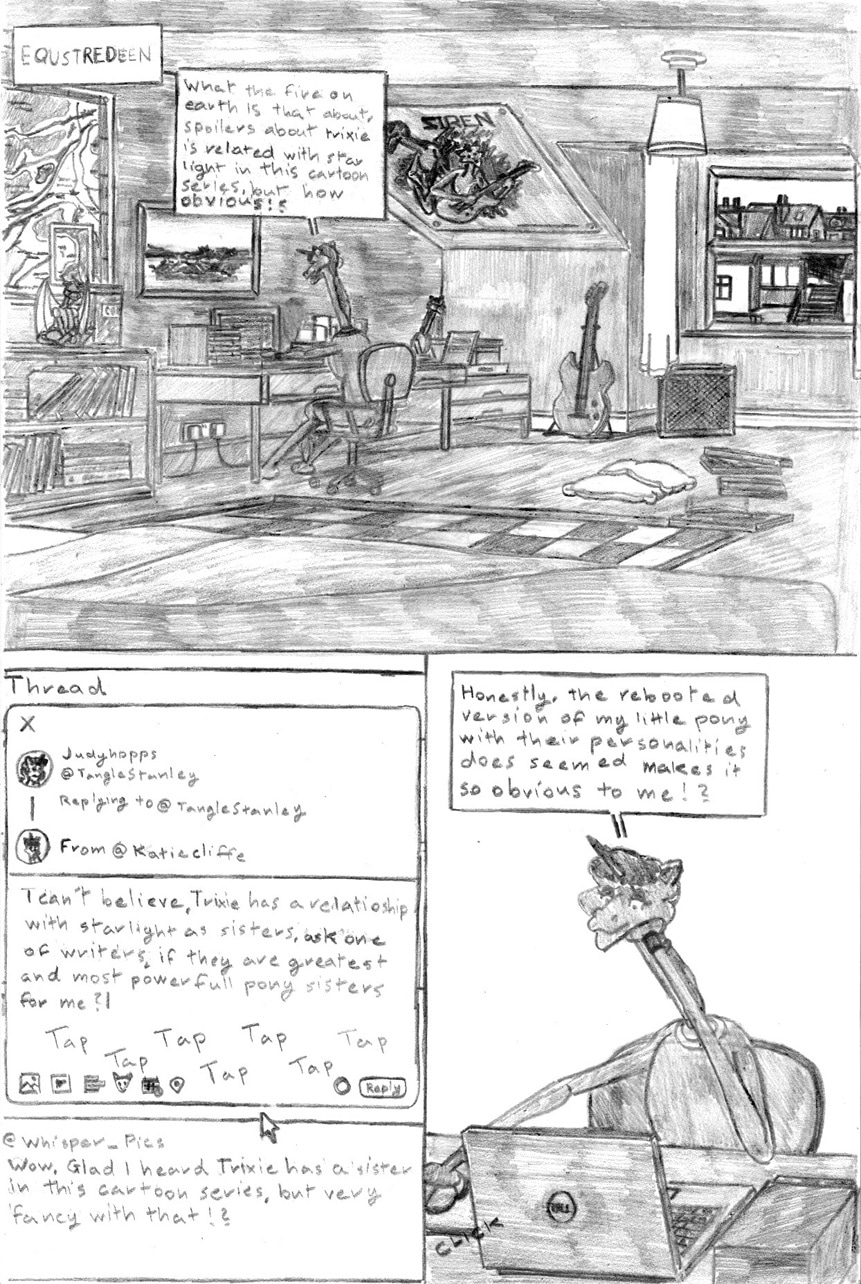 EQUSTREDEEN
What the fire on
earth is that about,
spoilers about trixie
is related with star
light in this cartoon
series, but how
obvious!?
SIREN
Thread
X
Judyhopps
@TangleStanley
Replying to @TangleStanley
From @Katiecliffe
I can't believe, Trixie has a relatioship
with starlight as sisters, ask one
of writers, if they are greatest
and most powerfull pony sisters
for me?!
Tap Tap Tap Tap
Tap Tap Tap
Reply
@Whisper_Pies
Wow, Glad I heard Trixie has a sister
in this cartoon series, but very
fancy with that!?
Honestly, the rebooted
version of my little pony
with their personalities
does seemed makes it
so obvious to me!?
DELL
CLICK